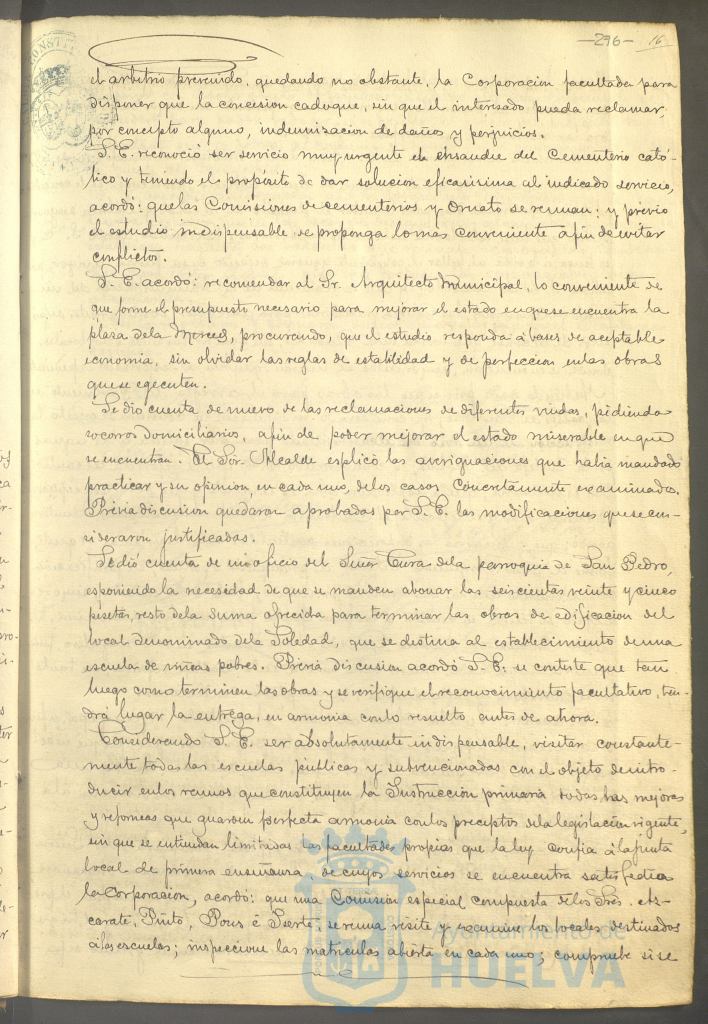 -296- 16
el arbitrio prevenido, quedando no obstante, la Corporacion facultada para
disponer que la concesion caduque, sin que el interesado pueda reclamar,
por concepto alguno, indemnizacion de daños y perjuicios.
S. E. reconoció ser servicio muy urgente el ensanche del Cementerio cató-
lico y teniendo el propósito de dar solucion eficasisima al indicado servicio,
acordó: que las Comisiones de Cementerios y Ornato se reunan: y previo
el estudio indispensable se proponga lo mas conveniente afin de evitar
conflictos.
S. E. acordó: recomendar al Sr. Arquitecto Municipal, lo conveniente de
que forme el presupuesto necesario para mejorar el estado en que se encuentra la
plaza de la Merced, procurando, que el estudio responda á bases de aceptable
economia, sin olvidar las reglas de estabilidad y de perfeccion en las obras
que se egecuten.
Se dio cuenta de nuevo de las reclamaciones de diferentes viudas, pidiendo
socorros domiciliarios, afin de poder mejorar el estado miserable en que
se encuentran. El Sor. Alcalde esplicó las averiguaciones que habia mandado
practicar y su opinion, en cada uno, de los casos concretamente examinados.
Prévia discusion quedaron aprobadas por S. E. las modificaciones que se con-
sideraron justificadas.
Se dió cuenta de un oficio del Señor Cura de la parroquia de San Pedro,
esponiendo la necesidad de que se manden abonar las seiscientas veinte y cinco
pesetas, resto de la suma ofrecida para terminar las obras de edificacion del
local denominado de la Soledad, que se destina al establecimiento de una
escuela de niñas pobres. Prévia discusion acordó S. E: se conteste que tan
luego como terminen las obras y se verifique el reconocimiento facultativo, ten-
drá lugar la entrega, en armonia con lo resuelto antes de ahora.
Considerando S. E. ser absolutamente indispensable, visitar constante-
mente todas las escuelas públicas y subvencionadas con el objeto de intro-
ducir en los ramos que constituyen la Instruccion primaria todas las mejoras
y reformas que guarden perfecta armonia con los preceptos de la legislacion vigente,
sin que se entiendan limitadas las facultades propias que la ley confia á la junta
local de primera enseñanza, de cuyos servicios se encuentra satisfecha
la Corporacion, acordó: que una Comision especial compuesta de los Sres. As-
carate, Pinto, Pous é , se reuna visite y examine los locales destinados
á las escuelas; inspeccione las matriculas abierta en cada uno; compruebe si se
Ayuntamiento de
HUELVA